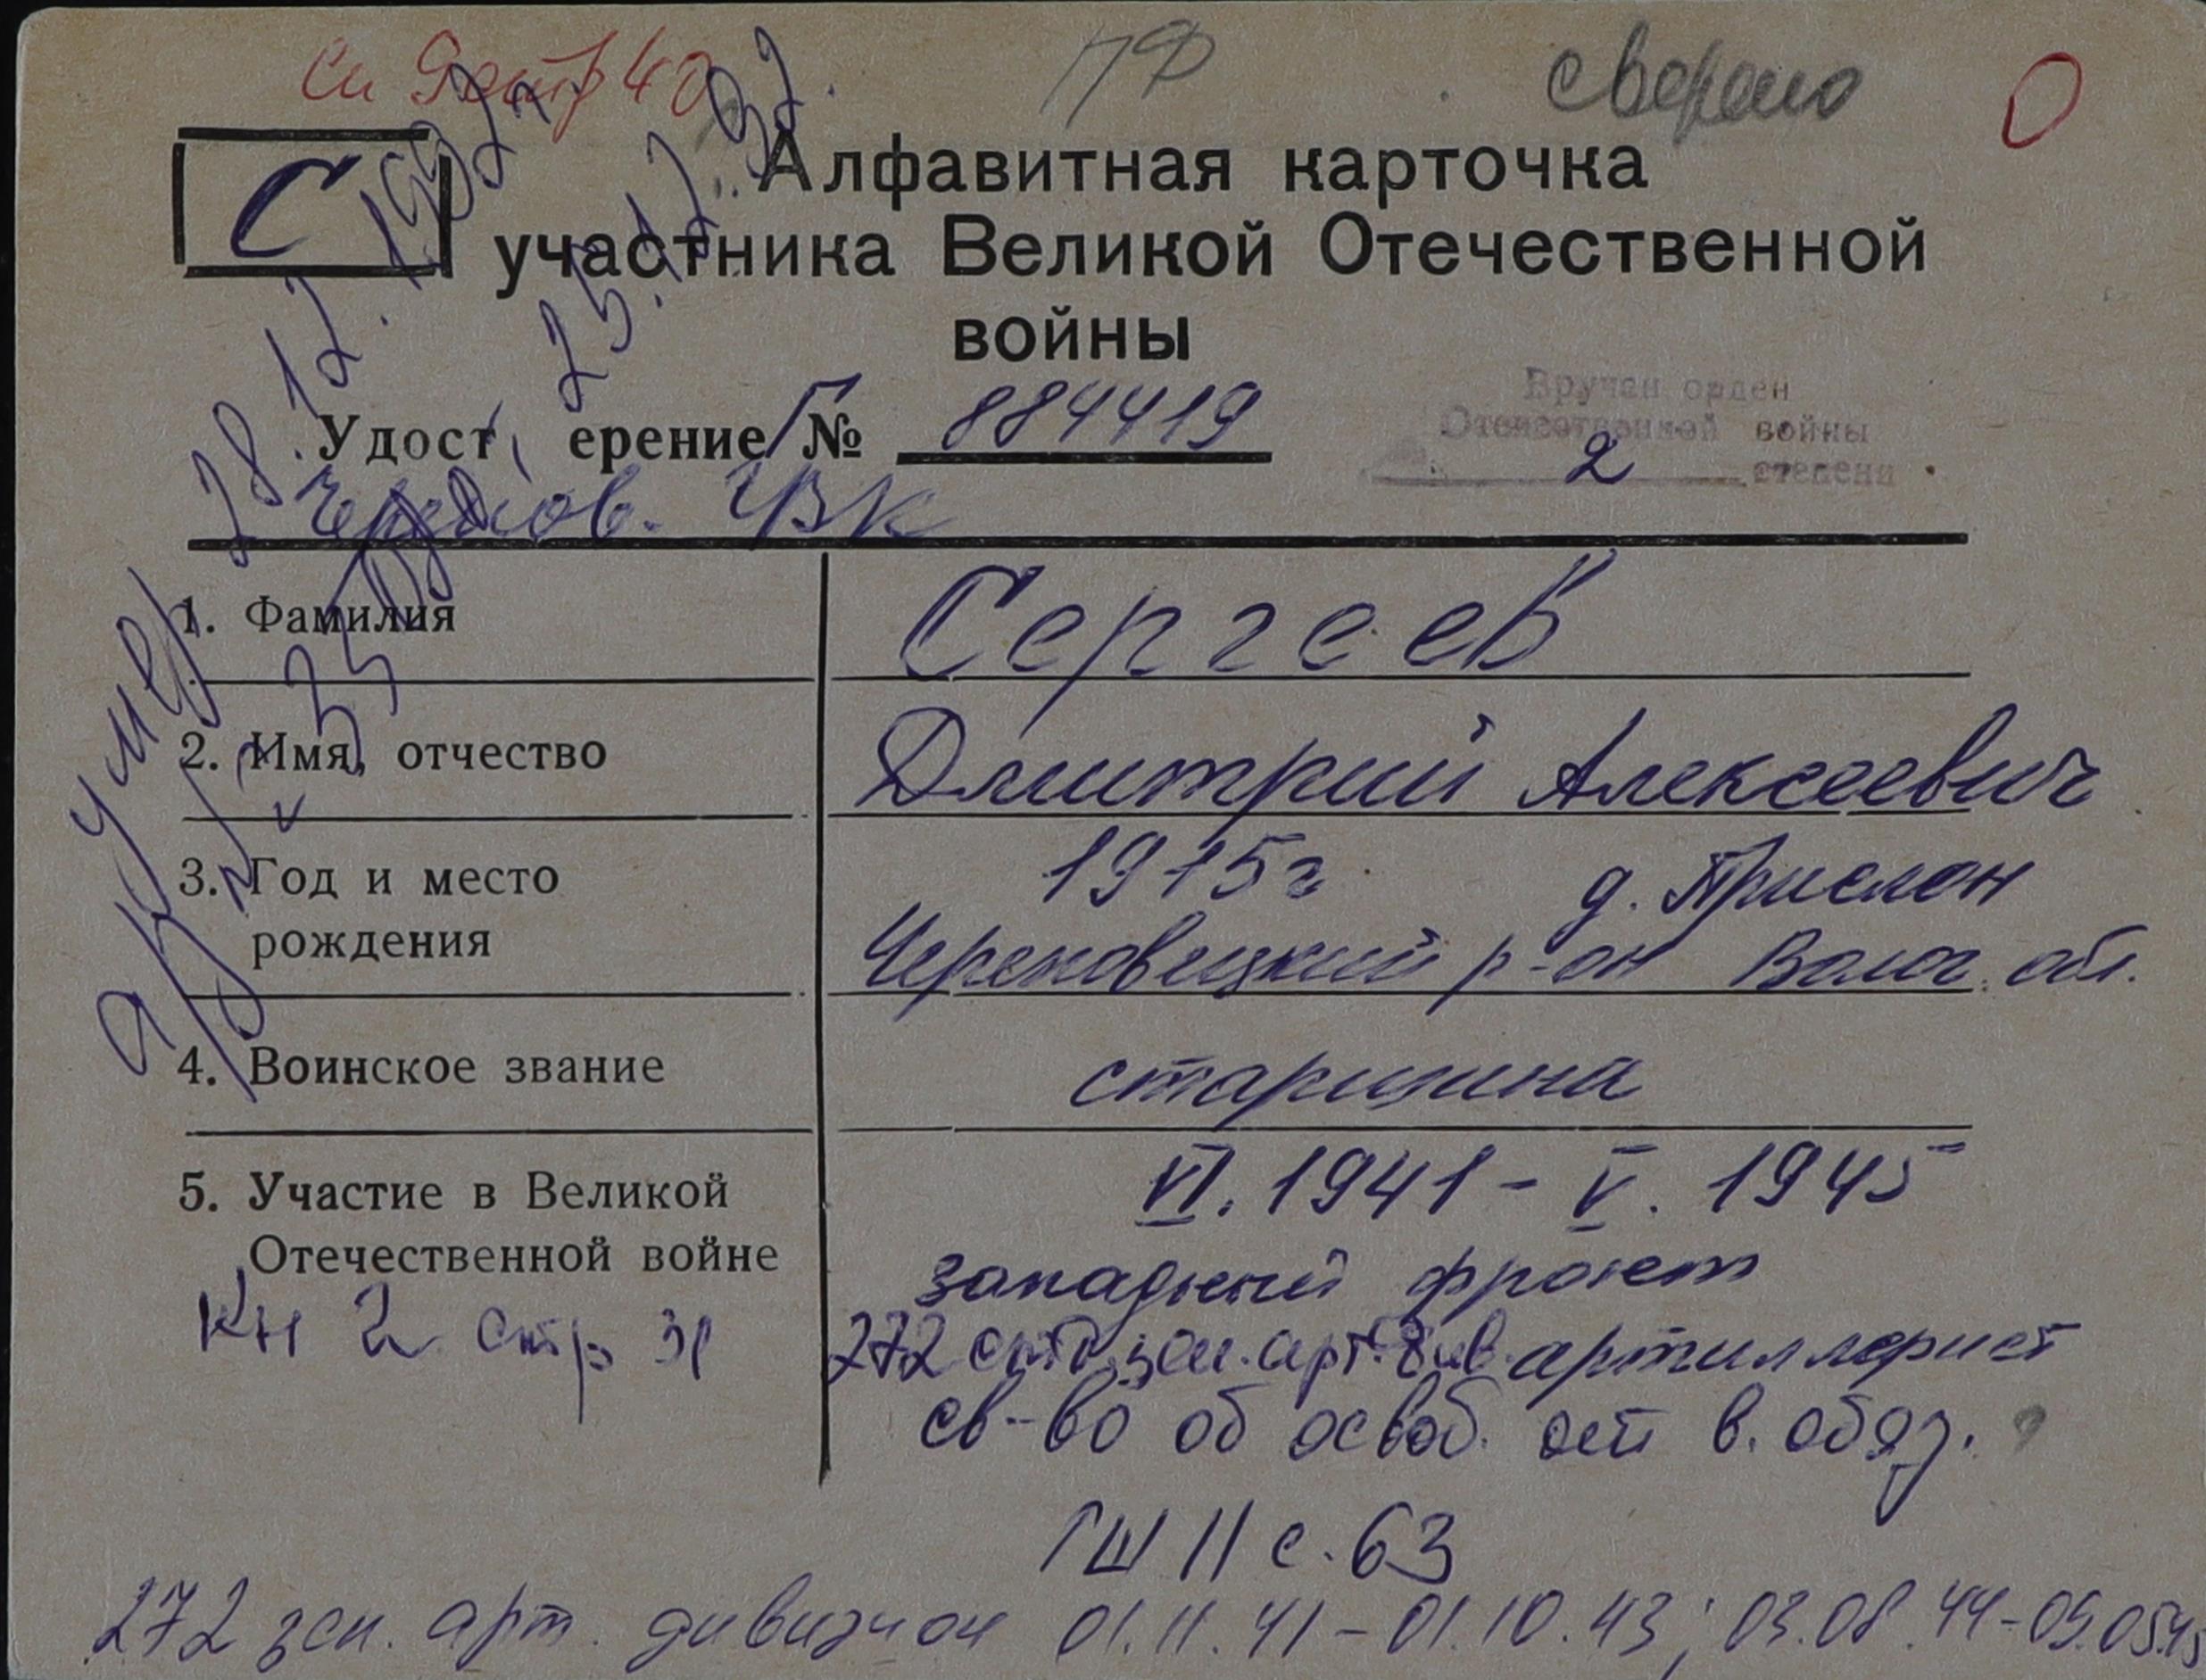 стр 40
ПФ
сверено
О
С
Алфавитная карточка
участника Великой Отечественной
войны
Удостоверение Г № 884419
Вручен орден
Отечественной войны
2 степени
Черепов. ГВК
умер 28.12.1992г.
25.12.92.
1. Фамилия
Сергеев
2. Имя, отчество
Дмитрий Алексеевич
3. Год и место
рождения
1915г. д. Прислон
Череповецкий р-он Волог. обл.
4. Воинское звание
старшина
5. Участие в Великой
Отечественной войне
VI. 1941 - V. 1945
западный фронт
272 зен. арт. артиллерист
св-во об освоб. от в. обяз.
Кн 2 стр 31
ГШ II с. 63
272 зен. арт. дивизион 01.11.41 - 01.10.43; 03.08.44 - 09.05.45